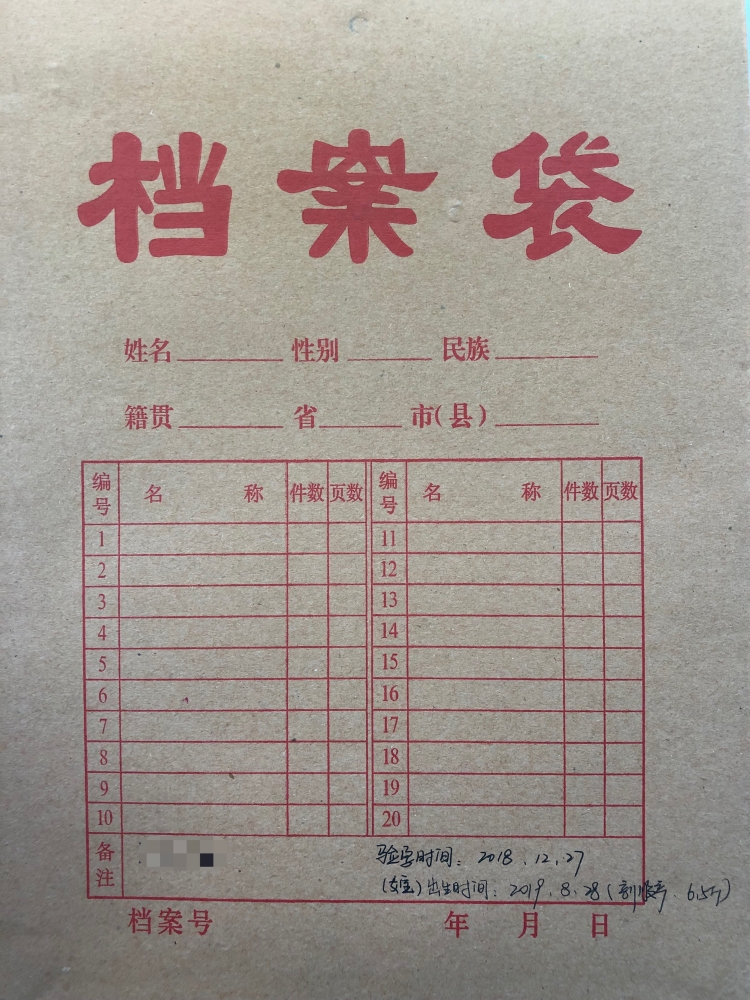 档案袋
姓名 性别 民族
籍贯 省 市(县)
编号 名称 件数 页数 编号 名称 件数 页数
1 11
2 12
3 13
4 14
5 15
6 16
7 17
8 18
9 19
10 20
备注 验孕时间：2018.12.27
(女宝)出生时间：2019.8.28(剖腹产.6.5斤)
档案号 年 月 日